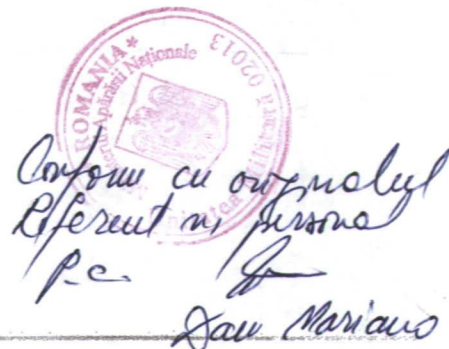 ROMANIA *
Ministerul Apărării Naționale
Unitatea Militară 02013
Conform cu originalul
Referent rs personal
P.c.
Dan Mariano